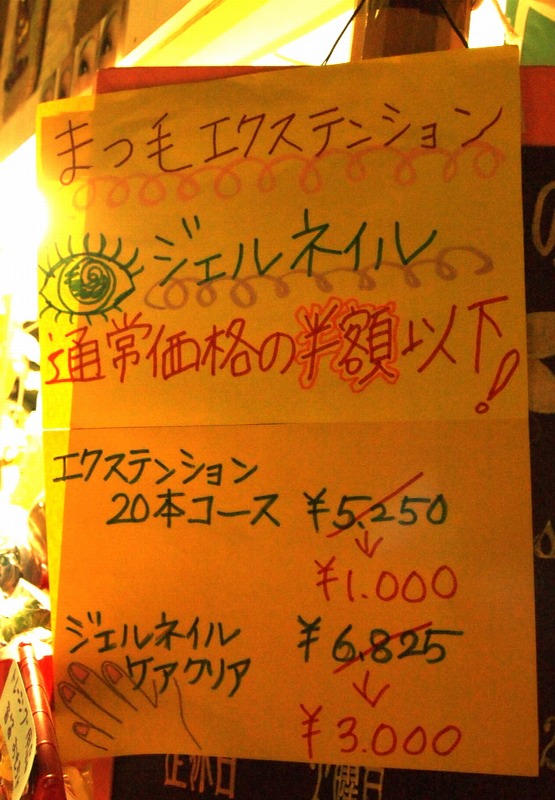 まつ毛エクステンション
ジェルネイル
通常価格の半額以下!
エクステンション
20本コース ¥5.250
↓
¥1.000
ジェルネイル ¥6.825
ケアクリア
↓
¥3.000
定休日 火曜日
の